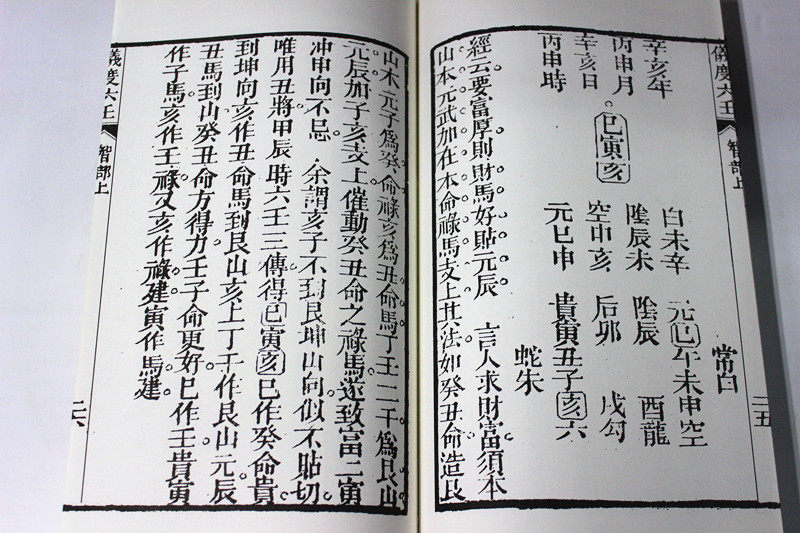 儀度六壬
智部上
二五
辛亥年
丙申月
辛亥日
丙申時
巳寅亥
白未辛
陰辰未
空申亥
元巳申
常白
元巳午未申空
陰辰 酉龍
后卯 戌勾
貴寅丑子亥六
蛇朱
經云要富厚則財馬好貼元辰 言人求財富須本
山本元武加在本命祿馬支上其法如癸丑命造艮
山木元子為癸命祿亥為丑命馬丁壬二干為艮山
元辰加子亥支上催動癸丑命之祿馬遂致富二寅
冲申向不忌 余謂亥子不到艮坤山向似不貼切
唯用丑將甲辰時六壬三傳得巳寅亥巳作癸命貴
到坤向亥作丑命馬到艮山亥上丁干作艮山元辰
丑馬到山癸丑命方得力壬子命更好巳作壬貴寅
作子馬亥作壬祿又亥作祿建寅作馬建
儀度六壬
智部上
二六